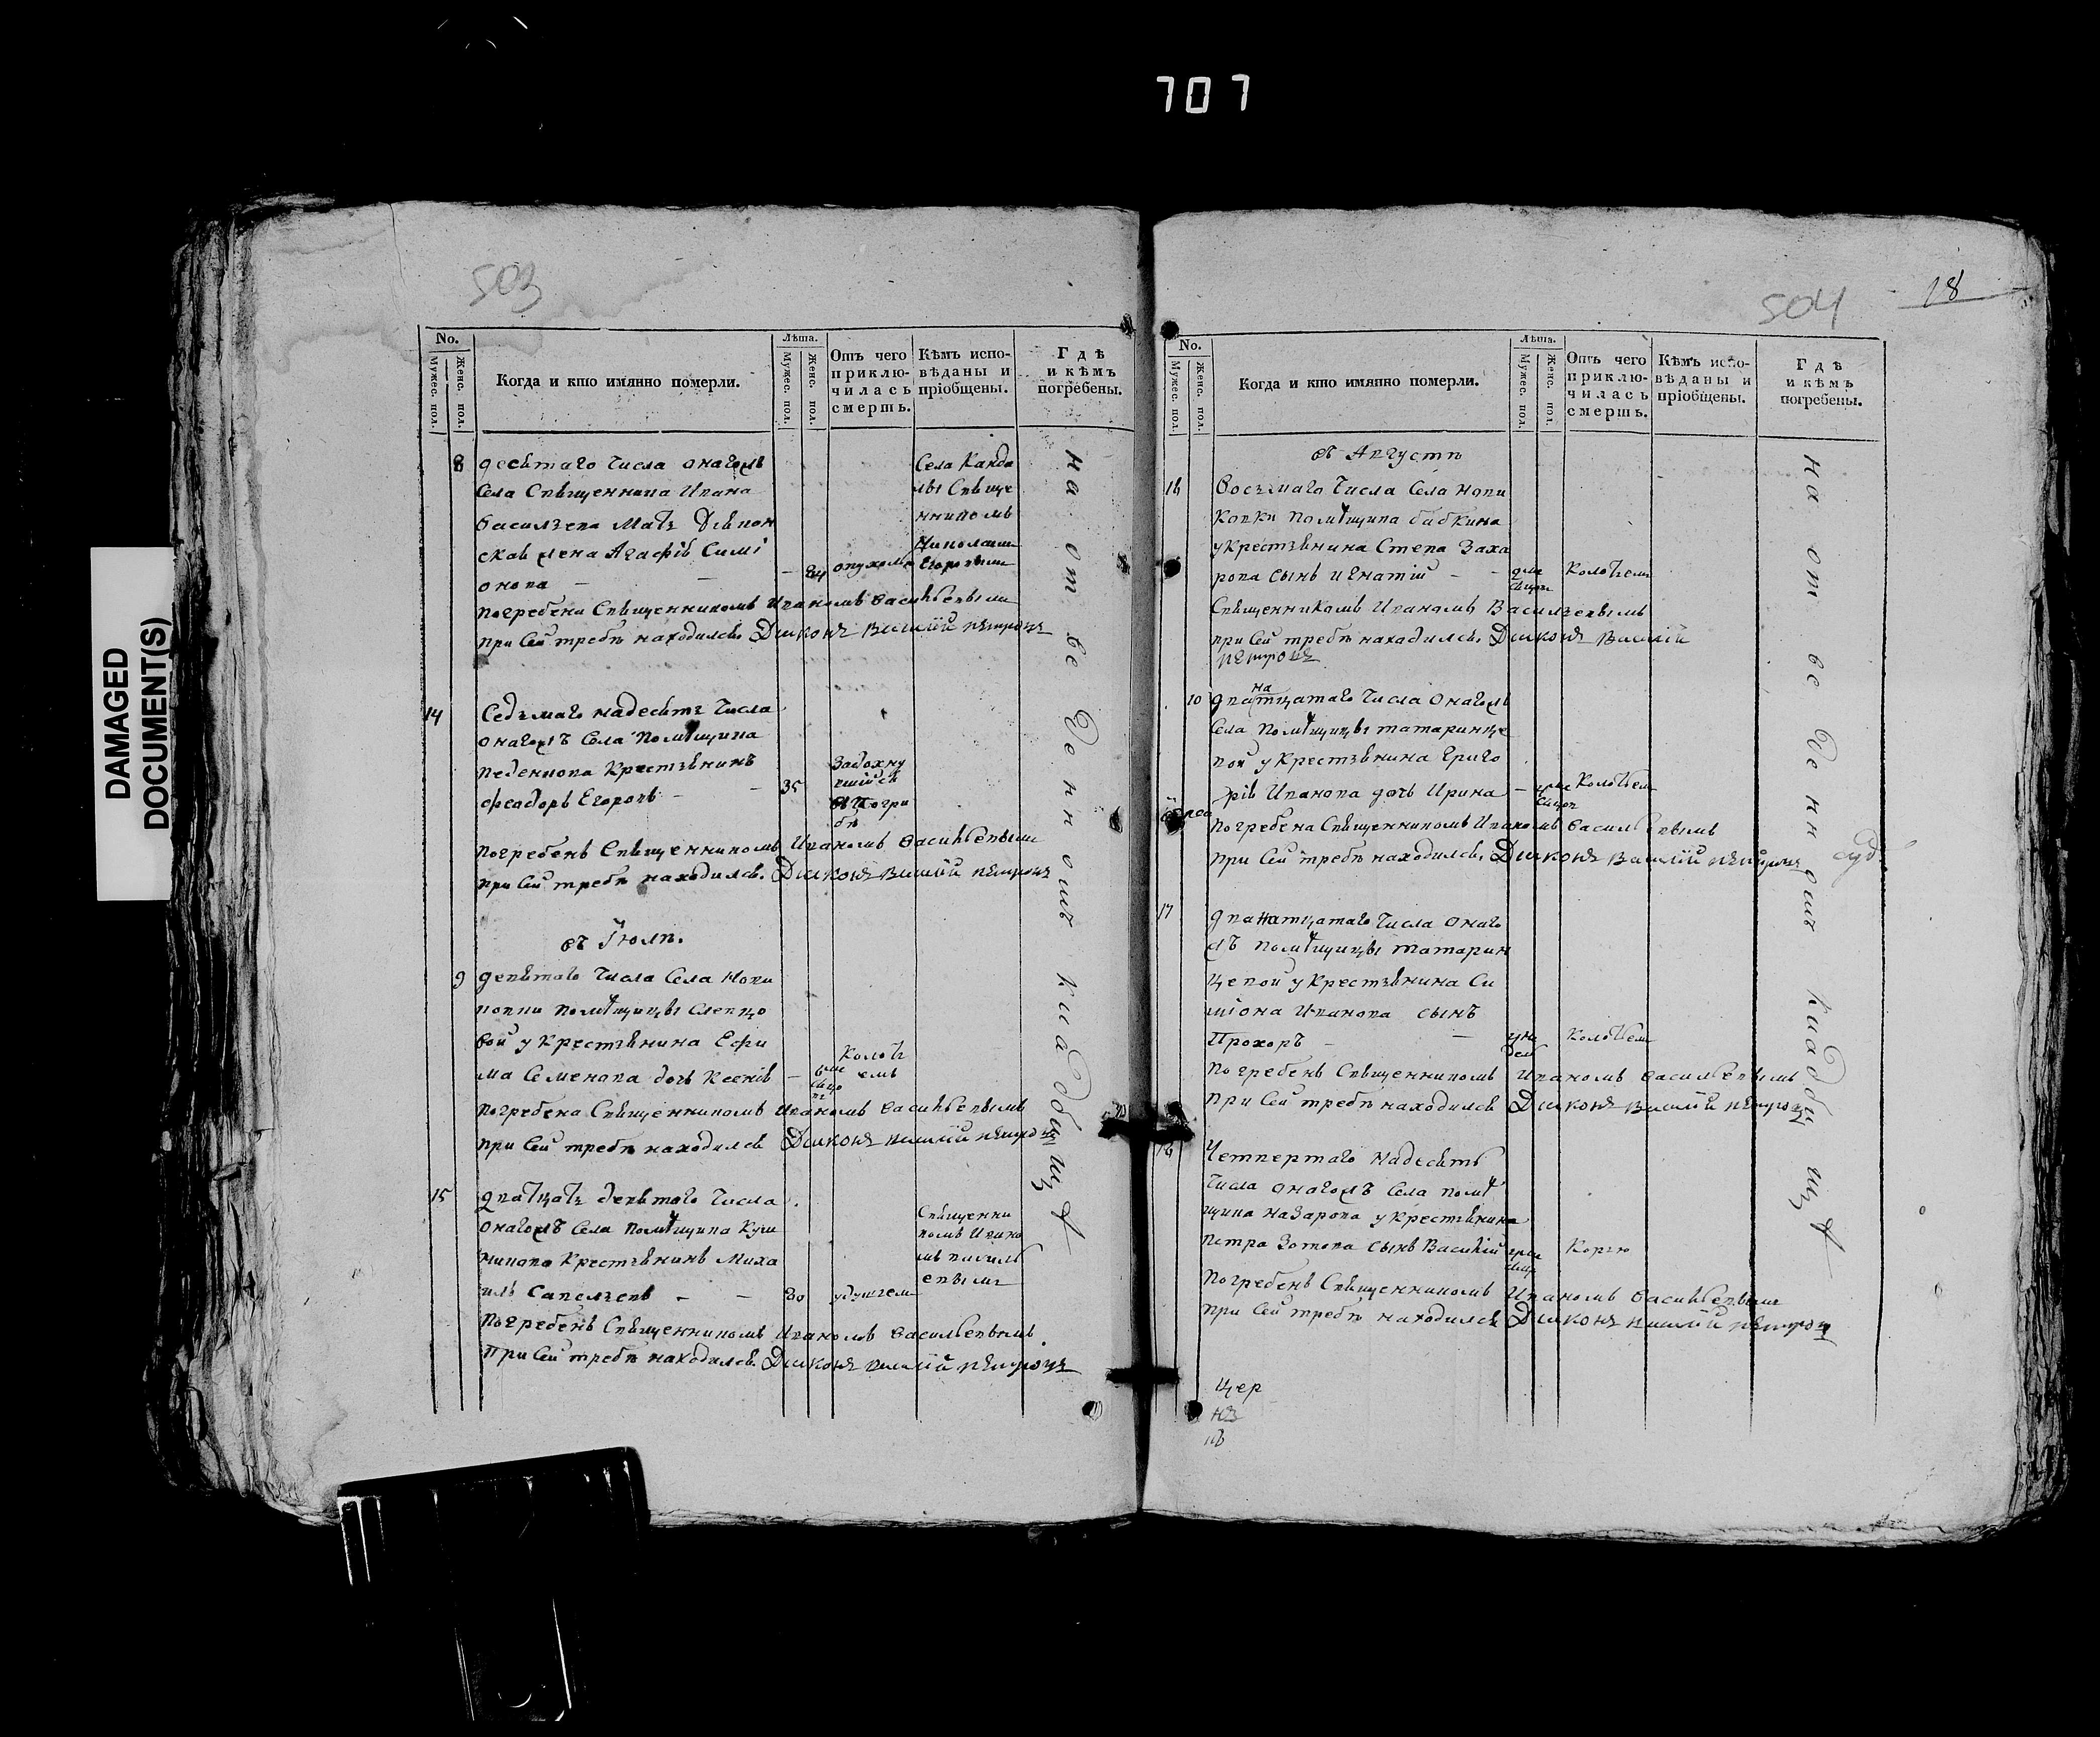 707
DAMAGED
DOCUMENT(S)
503
No.
Мужес. пол.
Женс. пол.
Когда и кто имянно померли.
Лѣта.
Мужес. пол.
Женс. пол.
Отъ чего
приклю-
чилась
смерть.
Кѣмъ испо-
вѣданы и
пріобщены.
Гдѣ
и кѣмъ
погребены.
8
десѧтаго числа онагожъ
села священника Ивана
Васильева мать
Агафія Симі
онова
84
опухоли
Села Канда
лы Свяще
нникомъ
Николаем
Егоровым
погребена Священникомъ Иваномъ Васильевымъ
при сей требѣ находился Дьяконъ Василій Петровъ
14
Седьмаго надесять числа
онагожъ села помѣщика
крестьянинъ
Феодоръ Егоровъ
35
Задохну
вшійся
въ погри
бѣ
погребенъ Священникомъ Иваномъ Васильевымъ
при сей требѣ находился Дьяконъ Василій Петровъ
въ Іюлѣ.
9
девятаго числа села Нови
ковки помѣщицы Слепцо
вой у крестьянина Ефи
ма Семенова дочь Ксенія
Колоть
емъ
погребена Священникомъ Иваномъ Васильевымъ
при сей требѣ находился Дьяконъ Василій Петровъ
15
двадцать девятаго числа
онагожъ села помѣщика Куш
никова крестьянинъ Миха
илъ Савельевъ
80
удушьем
Священни
комъ Ивано
мъ Василь
евымъ
Погребенъ Священникомъ Иваномъ Васильевымъ
При сей требѣ находился Дьяконъ Василій Петровъ
на отведенномъ кладбищѣ
504
18
No.
Мужес. пол.
Женс. пол.
Когда и кто имянно померли.
Лѣта.
Мужес. пол.
Женс. пол.
Отъ чего
приклю-
чилась
смерть.
Кѣмъ испо-
вѣданы и
пріобщены.
Гдѣ
и кѣмъ
погребены.
въ Августѣ
16
Восьмаго числа села Нови
ковки помѣщика Бабкина
у крестьянина Степа Заха
рова сынъ Игнатій
Колотьем
Священникомъ Иваномъ Васильевымъ
при сей требѣ находился Дьяконъ Василій
Петровъ
10
на
дватцатаго числа онагожъ
села помѣщицы Татаринце
вой у крестьянина Григо
рія Иванова дочь Ирина
Колотьем
погребена Священникомъ Иваномъ Васильевымъ
при сей требѣ находился Дьяконъ Василій Петровъ
17
дванатцатаго числа онаго
жъ помѣщицы Татарин
цевой у крестьянина Си
міона Иванова сынъ
Прохоръ
Колотьем
Погребенъ Священникомъ Иваномъ Васильевымъ
при сей требѣ находился Дьяконъ Василій Петровъ
18
Четвертаго надесять
числа онагожъ села помѣ
щика Назарова у крестьянина
Петра Зотова сынъ Василій
Корью
Погребенъ Священникомъ Иваномъ Васильевымъ
при сей требѣ находился Дьяконъ Василій Петровъ
на отведенномъ кладбищѣ
цер